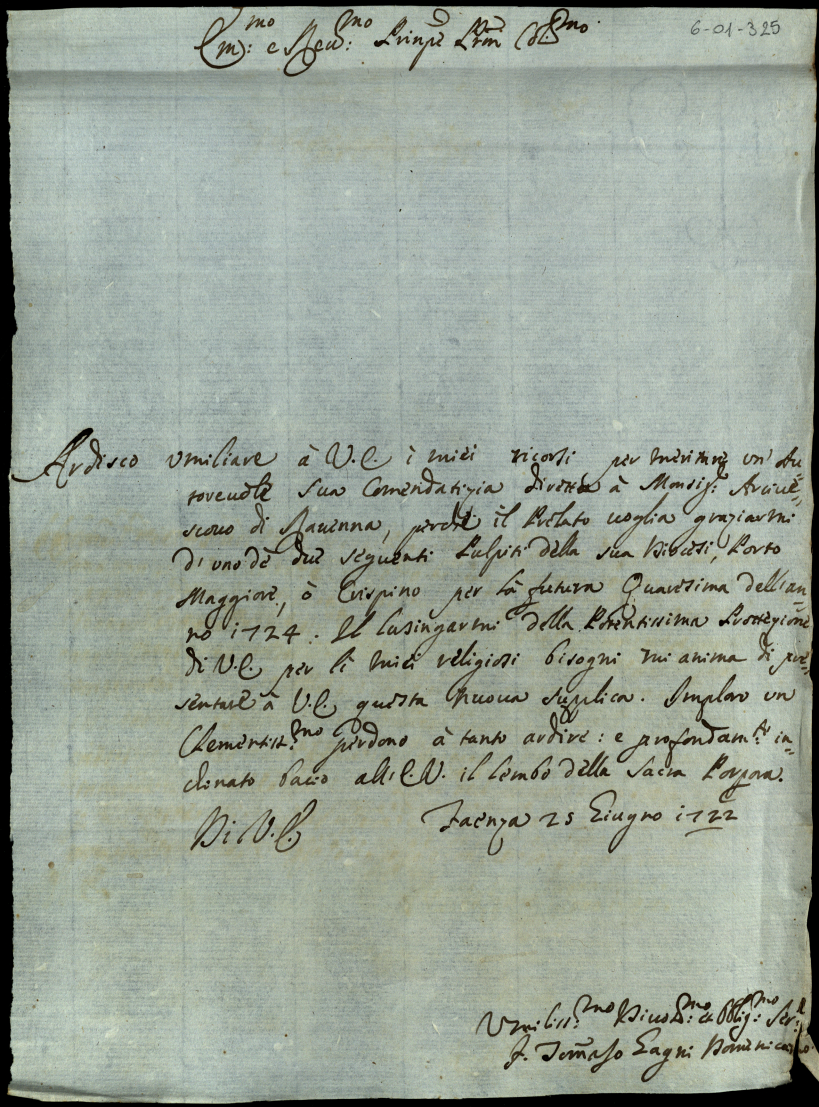 Em:mo e Reu:mo Prinpe Prñ Col:mo
6-01-325
Ardisco vmiliare à V.E. i miei ricorsi per meritare vn' Au=
toreuole sua Comendatizia diretta à Monsig: Arciue=
scouo di Rauenna, perche il Prelato uoglia graziarmi
d' uno dè due seguenti Pulpiti della sua Diocesi, Porto
Maggiore, ò Crispino per la futura Quaresima dell'an=
no 1724. Il lusingarmi della Potentissima Protezione
di V.E. per li miei religiosi bisogni mi anima di pre=
sentare à V.E. questa nuoua suplica. Imploro vn
Clementiss:mo perdono à tanto ardire: e profondam:te in=
clinato bacio all'E.V. il lembo della Sacra Porpora.
Di V.E. Faenza 25 Giugno 1722
Vmiliss:mo Diuot:mo et Oblig:mo Ser:
F. Tomaso Domenicano